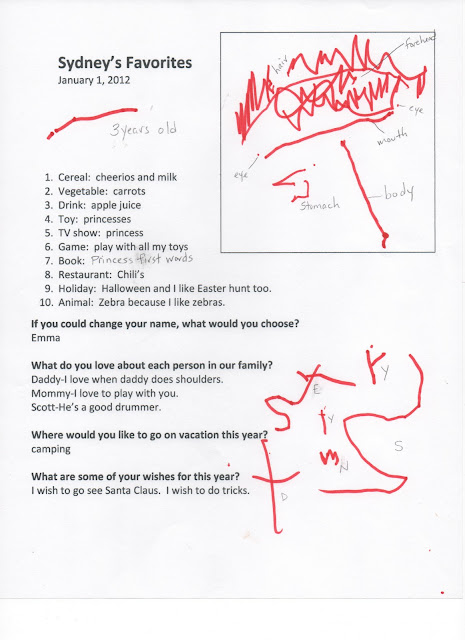 Sydney's Favorites
January 1, 2012
3 years old
hair
forehead
eye
mouth
eye
stomach
body
1. Cereal: cheerios and milk
2. Vegetable: carrots
3. Drink: apple juice
4. Toy: princesses
5. TV show: princess
6. Game: play with all my toys
7. Book: Princess first words
8. Restaurant: Chili's
9. Holiday: Halloween and I like Easter hunt too.
10. Animal: Zebra because I like zebras.
If you could change your name, what would you choose?
Emma
What do you love about each person in our family?
Daddy-I love when daddy does shoulders.
Mommy-I love to play with you.
Scott-He's a good drummer.
Where would you like to go on vacation this year?
camping
What are some of your wishes for this year?
I wish to go see Santa Claus.  I wish to do tricks.
E
Y
Y
S
N
D